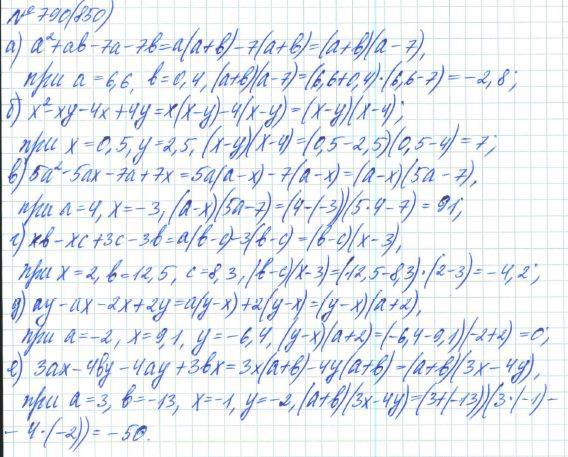 № 790(850)
а) a²+ab-7a-7b=a(a+b)-7(a+b)=(a+b)(a-7),
при a=6,6, b=0,4, (a+b)(a-7)=(6,6+0,4)·(6,6-7)=-2,8;
б) x²-xy-4x+4y=x(x-y)-4(x-y)=(x-y)(x-4);
при x=0,5, y=2,5, (x-y)(x-4)=(0,5-2,5)(0,5-4)=7;
в) 5a²-5ax-7a+7x=5a(a-x)-7(a-x)=(a-x)(5a-7),
при a=4, x=-3, (a-x)(5a-7)=(4-(-3))(5·4-7)=91;
г) xb-xc+3c-3b=a(b-c)-3(b-c)=(b-c)(x-3),
при x=2, b=12,5, c=8,3, (b-c)(x-3)=(12,5-8,3)·(2-3)=-4,2;
д) ay-ax-2x+2y=a(y-x)+2(y-x)=(y-x)(a+2),
при a=-2, x=9,1, y=-6,4, (y-x)(a+2)=(-6,4-9,1)(-2+2)=0;
е) 3ax-4by-4ay+3bx=3x(a+b)-4y(a+b)=(a+b)(3x-4y),
при a=3, b=-13, x=-1, y=-2, (a+b)(3x-4y)=(3+(-13))(3·(-1)-
-4·(-2))=-50.